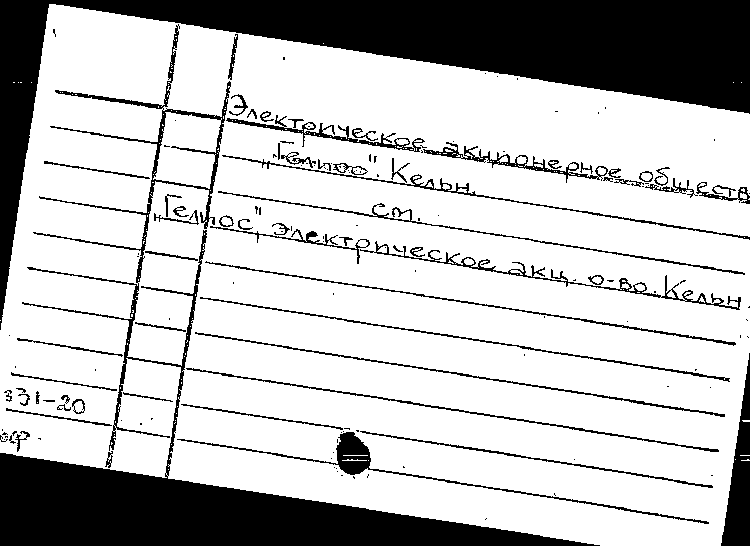 Электрическое акционерное обществ
„Гелиос". Кельн.
см.
„Гелиос", электрическое акц. о-во. Кельн.
331-20